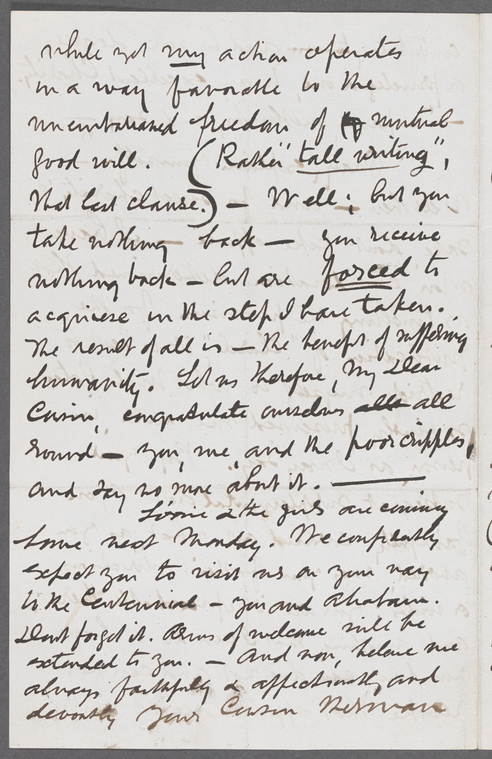 while yet my action operates
in a way favorable to the
unembarrased freedom of mutual
good will. (Rather "tall writing",
that last clause.) — Well; but you
take nothing back — you receive
nothing back — but are forced to
acquiese in the step I have taken.
The result of all is — the benefit of suffering
humanity. Let us therefore, My Dear
Cousin, congratulate ourselves all
round — you, me, and the poor cripples,
and say no more about it. —
Lizzie & the girls are coming
home next Monday. We confidently
expect you to visit us on your way
to the Centennial — you and Abraham.
Dont forget it. Arms of welcome will be
extended to you. — And now, believe me
always faithfully & affectionately and
devoutly Your Cousin Herman